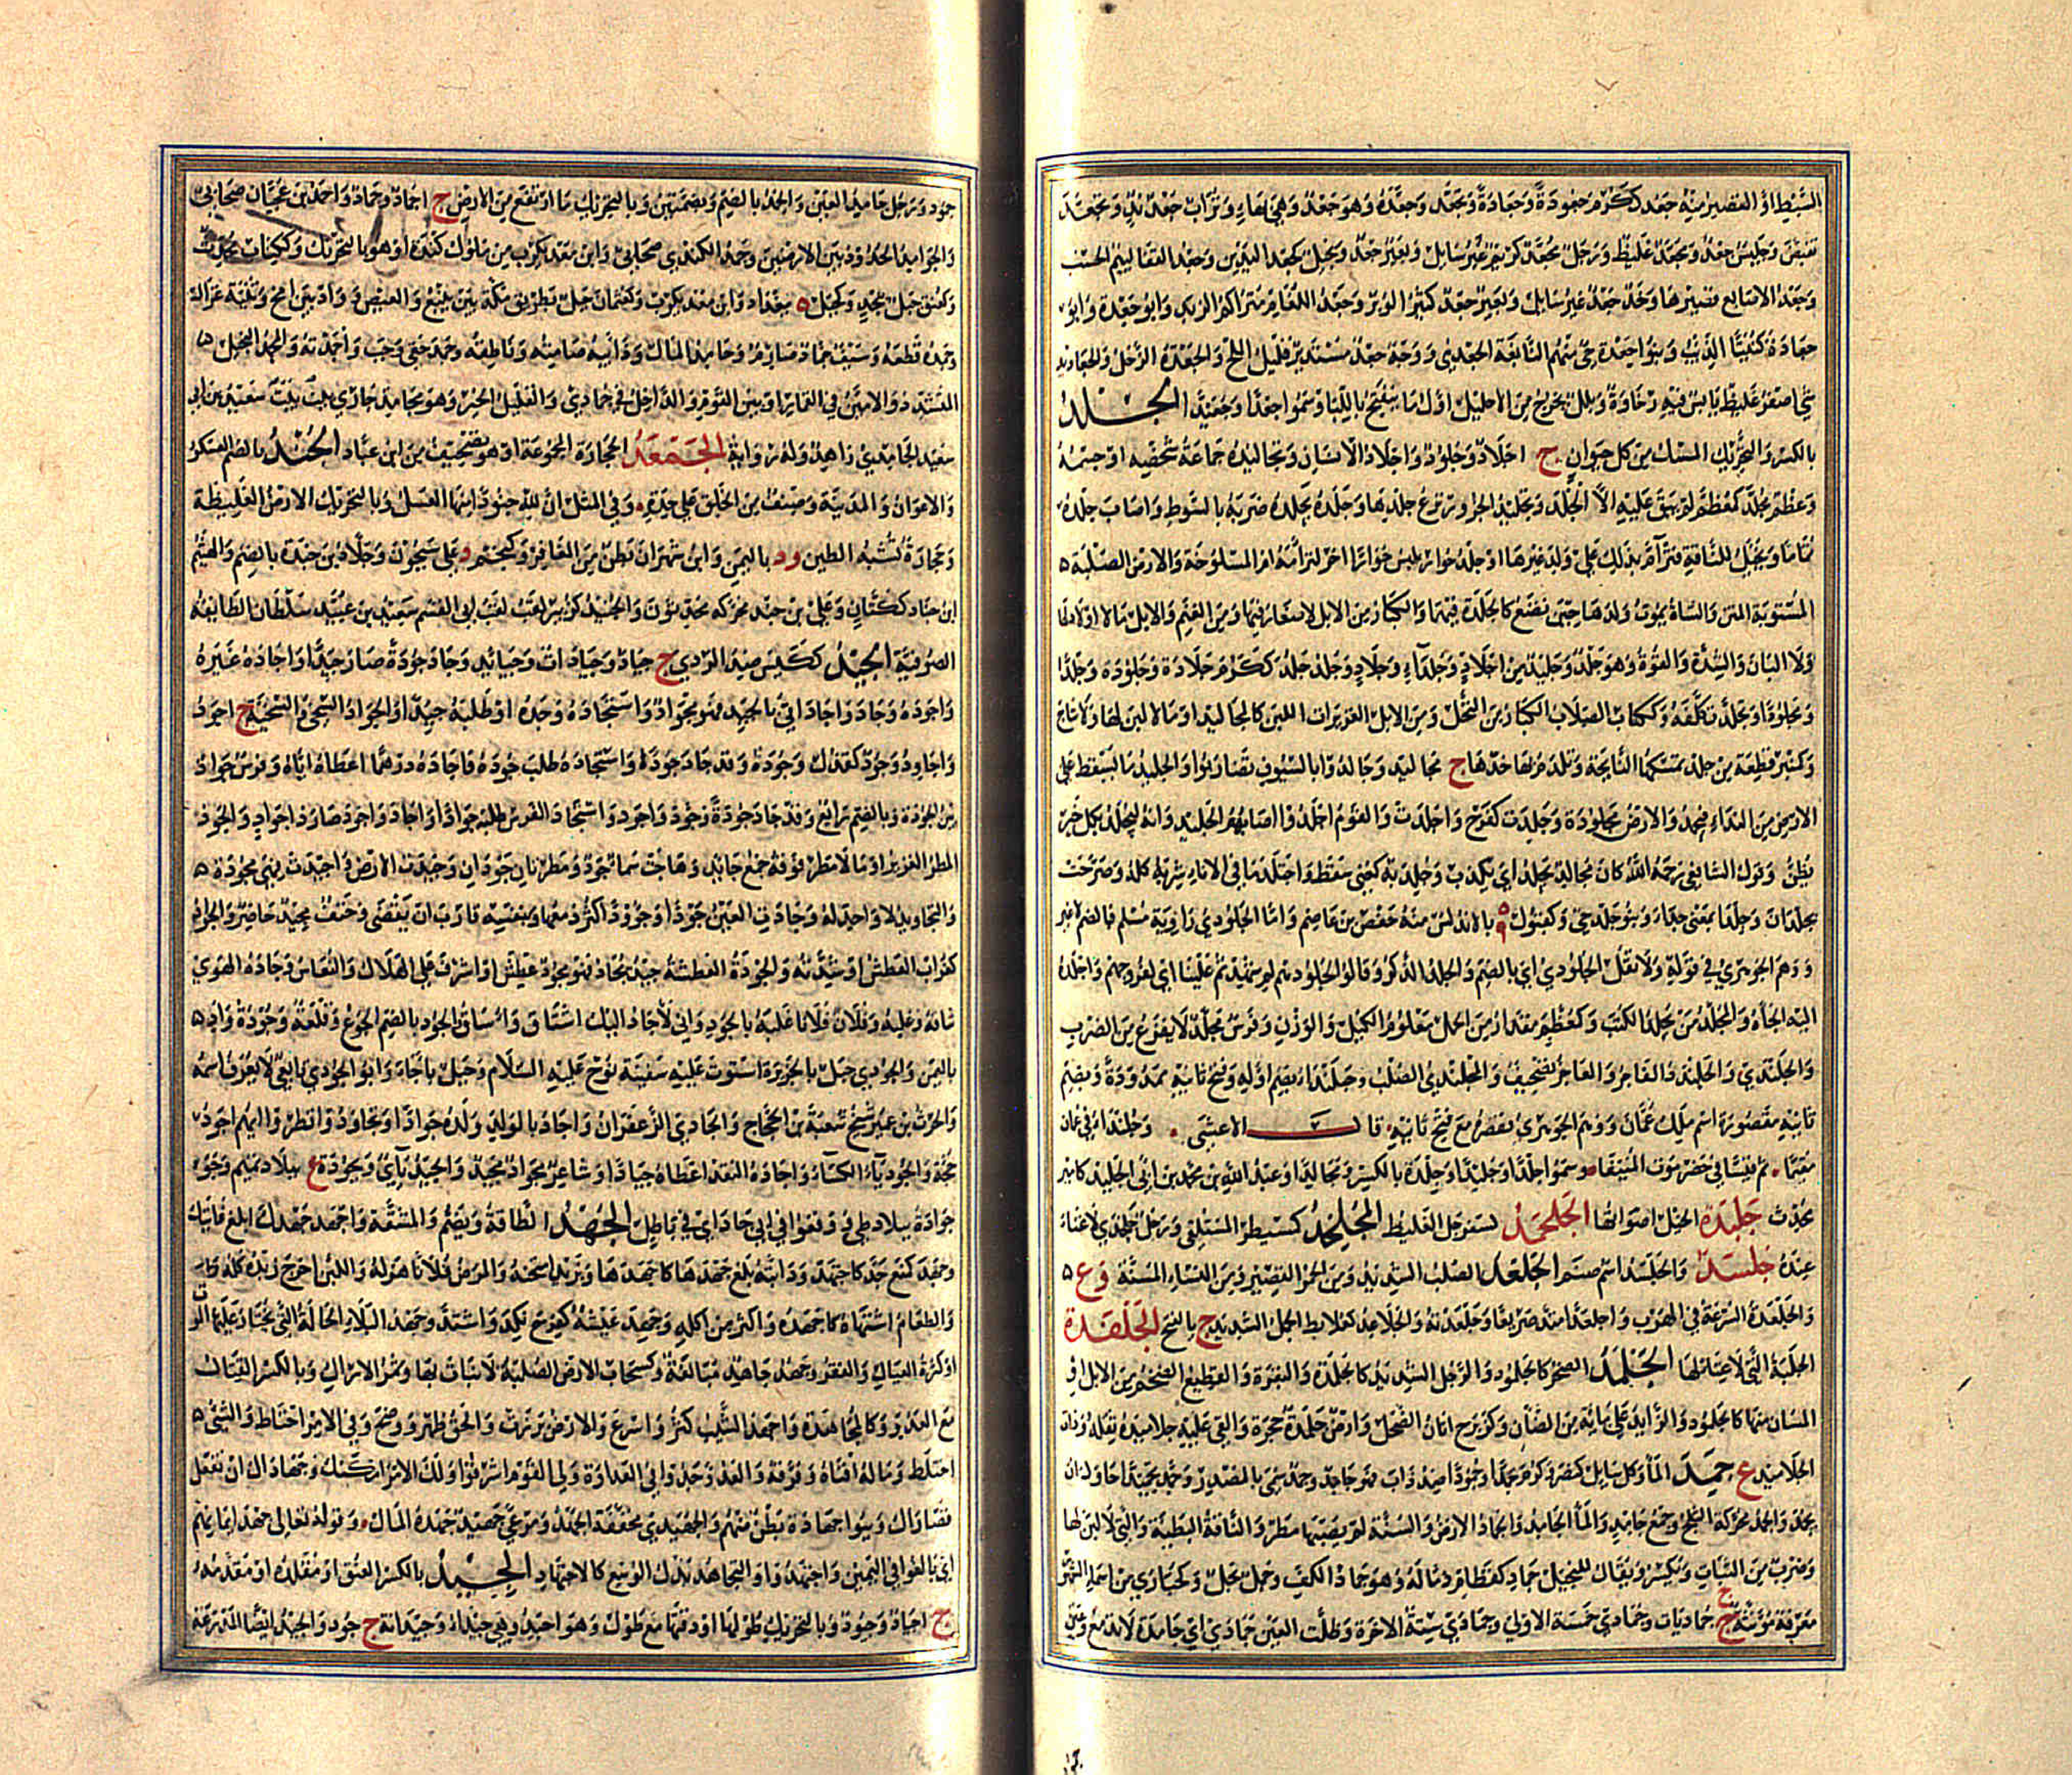 السبط او القصير منه جعد ككرم جعودة وجعادة وتجعد وجعده وهو جعد وهي بهاء وتراب جعد ند وتجعد
تقبض وحيس جعد ومجعد غليظ ورجل جعد كريم وبخيل كجعد اليدين وجعد القفا لئيم الحسب
وجعد الاصابع قصيرها وخد جعد غير اسيل وبعير جعد كثير الوبر وجعد اللغام متراكم الزبد وابو جعدة وابو
جعادة الذئب وبنو جعدة حي منهم النابغة الجعدي ووجه جعد مستدير قليل الملح والجعدة الرخل والجعاديد
شي اصفر غليظ يابس فيه رخاوة وبلل يخرج من الاحليل اول ما ينفتح باللبا وسموا جعدا وجعيدا الجلد
بالكسر والتحريك المسك من كل حيوان ج اجلاد وجلود واجلاد الانسان وتجاليده جماعة شخصه او جسمه
وعظم مجلد كمعظم لم يبق عليه الا الجلد وتجليد الجزور نزع جلدها وجلده يجلده ضربه بالسوط واصاب جلده
المستوية المتن والشاة يموت ولدها حين تضع كالجلدة فيهما والكبار من الابل لا صغار فيها ومن الغنم والابل ما لا اولاد لها
ولا البان والشدة والقوة وهو جلد وجليد من اجلاد وجلداء وجلاد وجلد جلد ككرم جلادة وجلودة وجلدا
ومجلودا وتجلد تكلفه وككتاب الصلاب الكبار من النخل ومن الابل الغزيرات اللبن كالمجاليد او ما لا لبن لها ولا نتاج
وكمنبر قطعة من جلد تمسكها النائحة وتلدم بها خدها ج مجاليد وجالدوا بالسيوف تضاربوا والجليد ما يسقط على
الارض من الندى فيجمد والارض مجلودة وجلدت كفرح واجلدت والقوم اجلدوا اصابهم الجليد وانه ليجلد بكل خير
يظن وقول الشافعي رحمه الله كان مجالد يجلد اي يكذب وجلد به كعني سقط واجتلد ما في الاناء شربه كله وصرحت
بجلدان وجلدا بمعنى جداء وبنو جلد حي وكقبول ه بالاندلس منه حفص بن عاصم واما الجلودي راوية مسلم فبالضم لا غير
ووهم الجوهري في قوله ولا تقل الجلودي اي بالضم والجلد الذكر وقالوا لجلودهم لم شهدتم علينا اي لفروجهم واجلده
اليه الجاه والمجلد من يجلد الكتب وكمعظم مقدار من الحمل معلوم الكيل والوزن وفرس مجلد لا يفزع من الضرب
والجلندى والجلندد الفاجر والعاجز تصحيف والجلندى الصلب وجلنداء بضم اوله وفتح ثانيه ممدودة وبضم
ثانيه مقصورة اسم ملك عمان ووهم الجوهري فقصره مع فتح ثانيه قال الاعشى وجلنداء في عمان
مقيما ثم قيسا في حضرموت المنيفا وسموا جلدا وجليدا وجلدة بالكسر ومجالدا وعبد الله بن محمد بن ابي الجليد كامير
محدث جلبدة الخيل اصواتها الجلحمد لسفرجل الغليظ المجلخد كمسبطر المستلقي ورجل جلخدي لا غناء
عنده جلسد والجلسد اسم صنم الجلعد الصلب الشديد ومن الحمر القصير ومن النساء المسنة وع
والجلعدة السرعة في الهرب واجلعد امتد صريعا وجلعدته والجلاعد كعلابط الجمل الشديد ج بالفتح الجلفدة
الجلبة التي لا غناء لها الجلمد الصخر كالجلمود والرجل الشديد كالجلمدة والبقرة والقطيع الضخم من الابل او
المسان منها كالجلمود والزائد على مائة من الضان وكزبرج اتان الضحل وارض جلمدة حجرة والقى عليه جلاميده ثقله وذات
الجلاميد ع جمد الماء وكل سايل كنصر وكرم جمدا وجمودا ضد ذاب فهو جامد وجمد سمي بالمصدر وجمد تجميدا حاول ان
يجمد والجمد محركة الثلج وجمع جامد والماء الجامد والجماد الارض والسنة لم يصبها مطر والناقة البطيئة والتي لا لبن لها
وضرب من الثياب ويكسر ويقال للبخيل جماد كقطام ذما له وهو جامد الكف وجمل بخل وكحبارى من اسماء الشهور
معرفة مونثة ج جماديات وجمادى خمسة الاولى وجمادى ستة الاخرة وظلت العين جمادى اي جامدة لا تدمع وعين
جمود ورجل جامد العين والجمد بالضم وبضمتين وبالتحريك ما ارتفع من الارض ج اجماد وجماد واحمد بن عجيان صحابي
والجوامد الحدود بين الارضين وجمد الكندي صحابي وابن معديكرب من ملوك كندة او هو بالتحريك وككتاب محدث
وكعنق جبل بنجد وكجبل ه ببغداد وابن معديكرب وكعثمان جبل بطريق مكة بين ينبع والعيص وواد بين امج وثنية غزال
وجمده قطعه وسيف جماد صارم وجامد المال وذائبه صامته وناطقه وجمد حقي وجب واجمدته والمجمد البخيل
المتشدد والامين في القمار او بين القوم والداخل في جمادى والقليل الخير وهو مجامدي جاري بيت بيت سعيد بن ابي
سعيد الجامدي زاهد وله رواية الجمعد الحجارة المجموعة او هو تصحيف من ابن عباد الجند بالضم العسكر
والاعوان والمدينة وصنف من الخلق على حدة وفي المثل ان لله جنودا منها العسل وبالتحريك الارض الغليظة
وحجارة تشبه الطين ود باليمن وابن شهران بطن من المعافر وكنجم د على سيحون وخلاد بن جندة بالضم والهيثم
ابن جناد ككتان وعلي بن جند محركة محدثون والجنيد كزبير لقب ابي القسم سعيد بن عبيد سلطان الطائفة
الصوفية الجيد ككيس ضد الردي ج جياد وجيادات وجيائد وجاد جودة صار جيدا واجاده غيره
واجوده وجاد واجاد اتى بالجيد فهو مجواد واستجاده وجده او طلبه جيدا والجواد السخي والسخية ج اجواد
واجاود وجود كقذال وجودة وقد جاد جودا واستجاده طلب جوده فاجاده درهما اعطاه اياه وفرس جواد
بين الجودة بالضم رائع وقد جاد جودة وجودة واجود واستجاد الفرس طلبه جوادا واجاد واجود صار ذا جواد والجود
المطر الغزير او ما لا مطر فوقه جمع جايد وهاجت سما جود ومطرتان جودان وجيدت الارض واجيدت فهي مجودة
كغراب العطش او شدته والجودة العطشة جيد يجاد فهو مجود عطش او اشرف على الهلاك والنعاس وجاده الهوى
شاقه وغلبه وفلان فلانا غلبه بالجود واني لاجاد اليك اشتاق واساق والجود بالضم الجوع وقلعة وجودة واد
باليمن والجودي جبل بالجزيرة استوت عليه سفينة نوح عليه السلام وجبل باجاء وابو الجودي تابعي لا يعرف اسمه
والحرث بن عمير شيخ شعبة بن الحجاج والجادي الزعفران واجاد بالولد ولده جوادا وتجاودوا نظروا ايهم اجود
حجة والجودياء الكساء واجاده النقد اعطاه جيادا وشاعر مجواد مجيد والجيد ياتي ويجودة ع ببلاد تميم وجو
جوادة ببلاد طي ووقعوا في ابي جاد اي في باطل الجهد الطاقة ويضم والمشقة واجهد جهدك ابلغ غايتك
وجهد كمنع جد كاجتهد ودابته بلغ جهدها كاجهدها وبزيد امتحنه والمرض فلانا هزله واللبن اخرج زبده كله
والطعام اشتهاه كاجهده واكثر من اكله وجهد عيشه كفرح نكد واشتد وجهد البلاء الحالة التي يختار عليها الموت
او كثرة العيال والفقر وجهد جاهد مبالغة وكسحاب الارض الصلبة لا نبات بها وثمر الاراك وبالكسر القتال
مع العدو كالمجاهدة واجهد الشيب كثر واسرع والارض برزت والحق ظهر ووضح وفي الامر احتاط والشي
اختلط وماله افناه وفرقه والعدو جد في العداوة ولي القوم اشرفوا ولك الامر امكنك وجهاداك ان تفعل
قصاراك وبنو جهادة بطن منهم والجهيدى مخففة الجهد ومرعى جهيد جهده المال وقوله تعالى جهد ايمانهم
اي بالغوا في اليمين واجتهدوا والتجاهد بذل الوسع كالاجتهاد الجيد بالكسر العنق او مقلده او مقدمه
ج اجياد وجيود وبالتحريك طولها او دقتها مع طول وهو اجيد وهي جيداء وجيدانة ج جود والجيد ايضا المدرعة